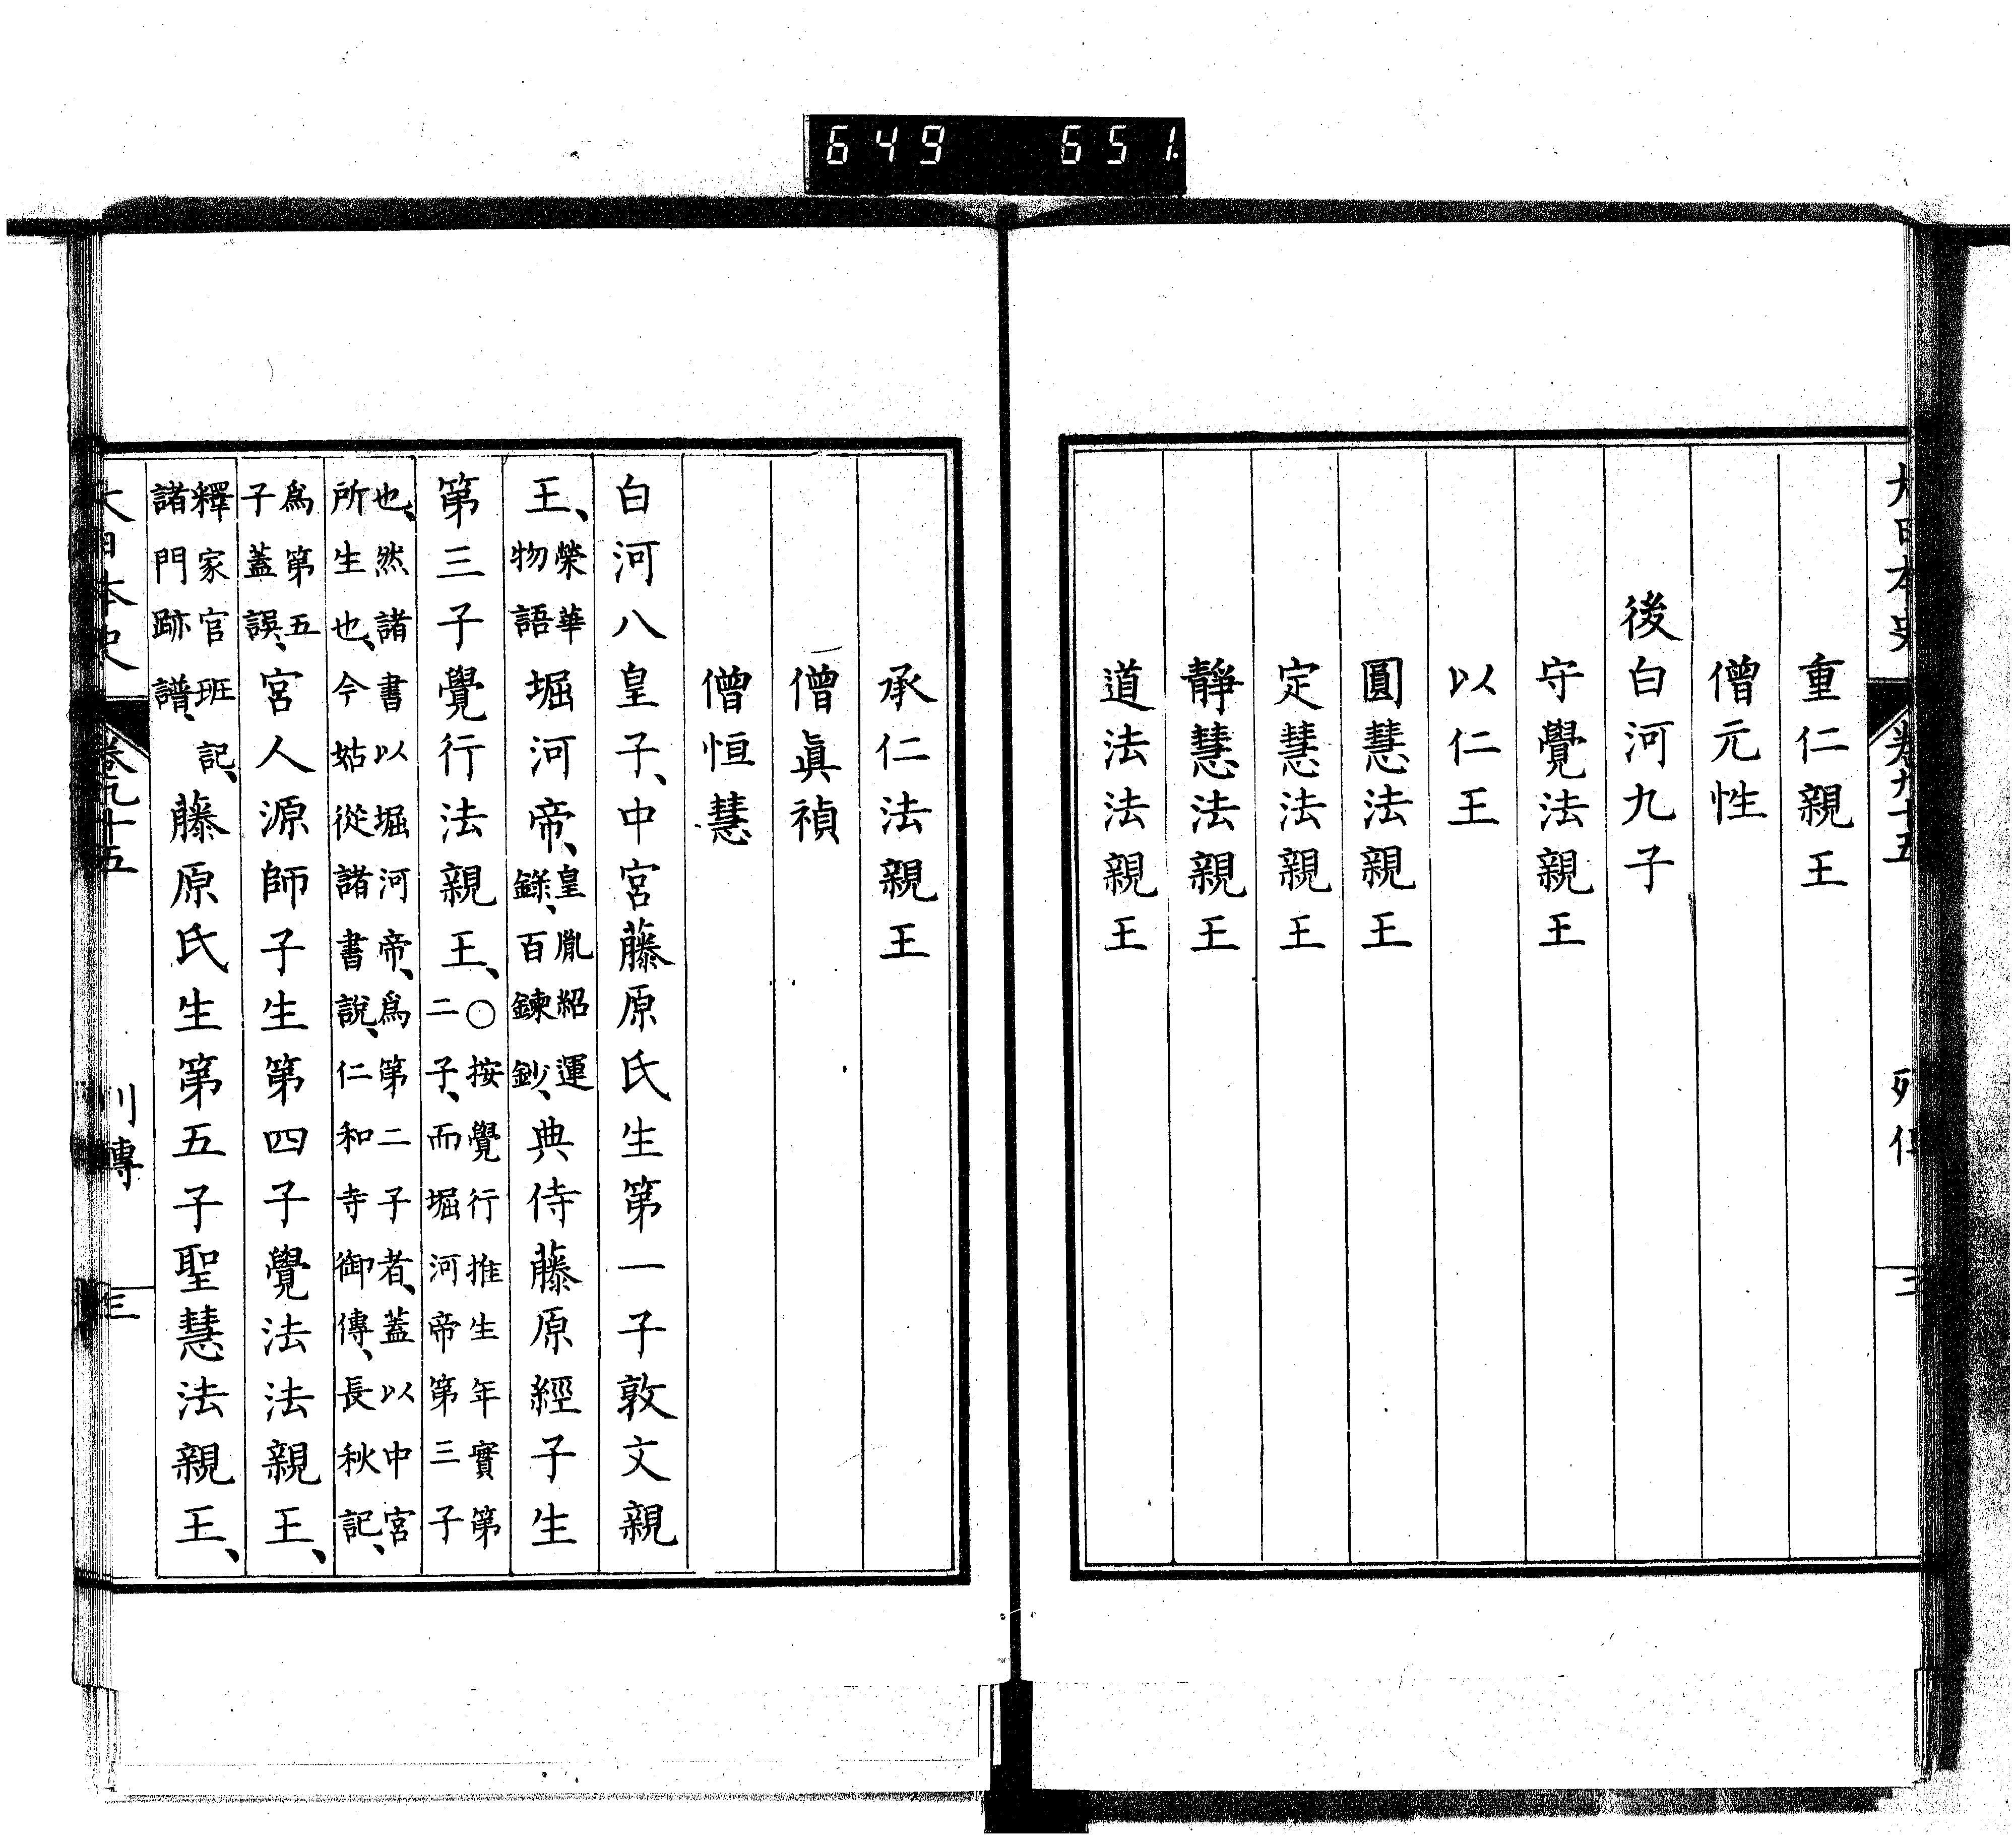 649 651
大日本史 卷九十五 列傳
重仁親王
僧元性
後白河九子
守覺法親王
以仁王
圓慧法親王
定慧法親王
靜慧法親王
道法法親王
承仁法親王
僧眞禎
僧恒慧
白河八皇子、中宮藤原氏生第一子敦文親
王、榮華物語堀河帝、皇胤紹運錄、百鍊鈔、典侍藤原經子生
第三子覺行法親王、〇按覺行推生年實第二子、而堀河帝第三子
也、然諸書以堀河帝、爲第二子者、蓋以中宮所生也、今姑從諸書說、仁和寺御傳、長秋記、
爲第五子蓋誤、宮人源師子生第四子覺法法親王、
釋家官班記、諸門跡譜、藤原氏生第五子聖慧法親王、
大日本史 卷九十五 列傳 三